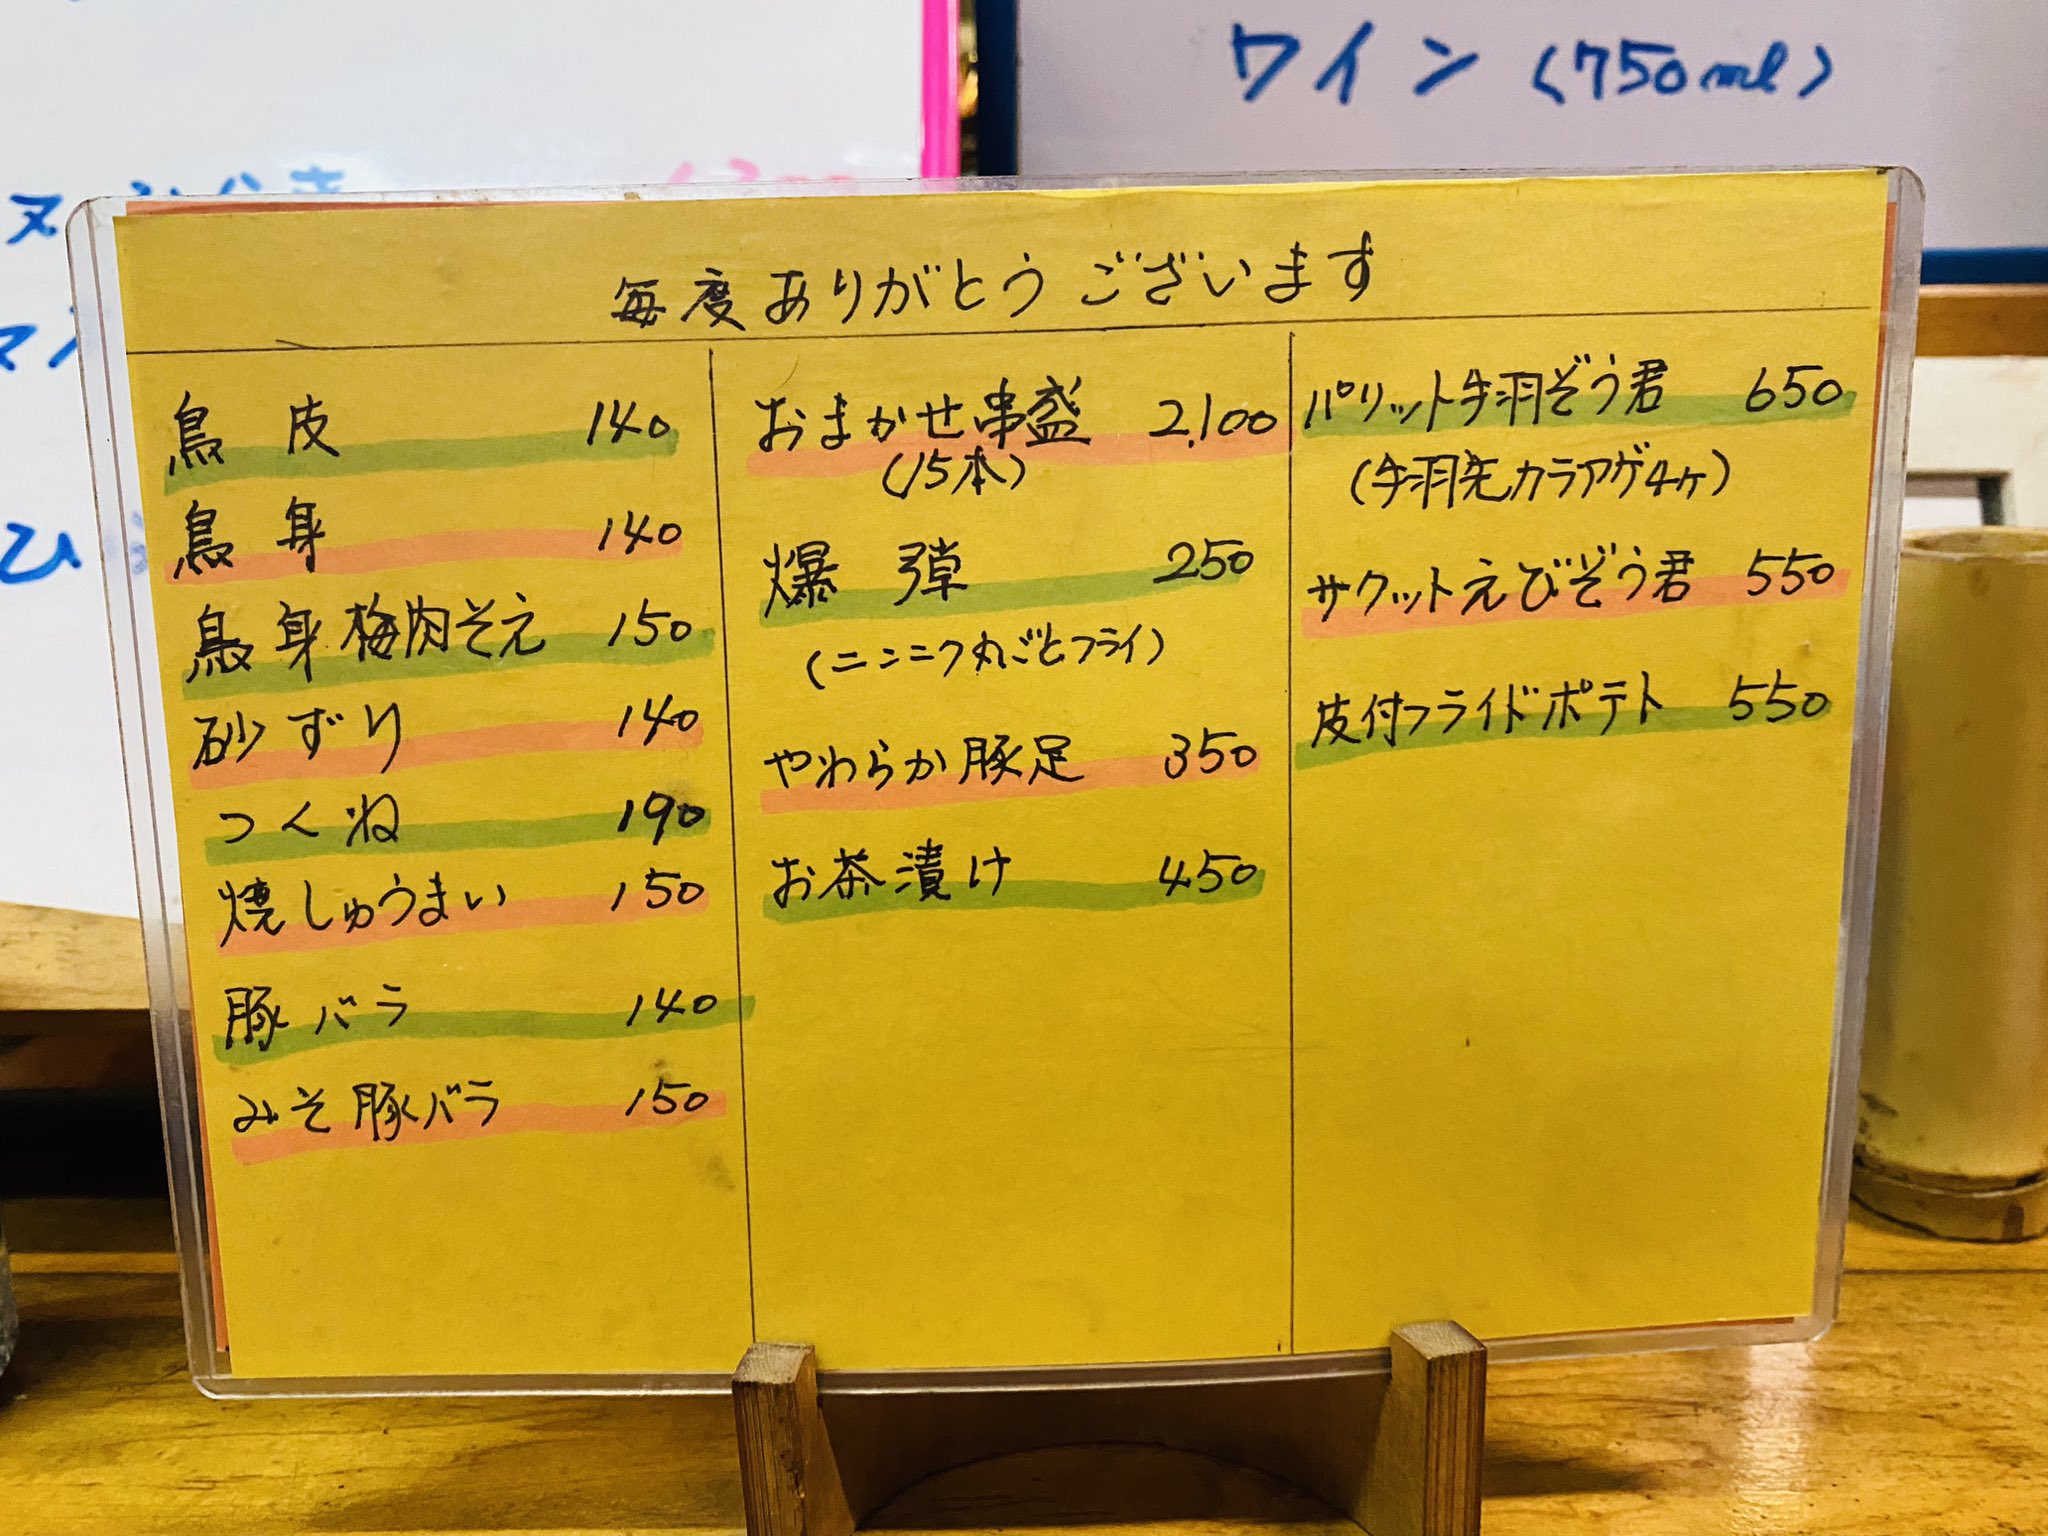 ワイン (750ml)
毎度ありがとうございます
鳥皮 140
鳥身 140
鳥身梅肉そえ 150
砂ずり 140
つくね 190
焼しゅうまい 150
豚バラ 140
みそ豚バラ 150
おまかせ串盛 2,100
(15本)
爆弾 250
(ニンニク丸ごとフライ)
やわらか豚足 350
お茶漬け 450
パリット手羽ぞう君 650
(手羽先カラアゲ4ヶ)
サクットえびぞう君 550
皮付フライドポテト 550